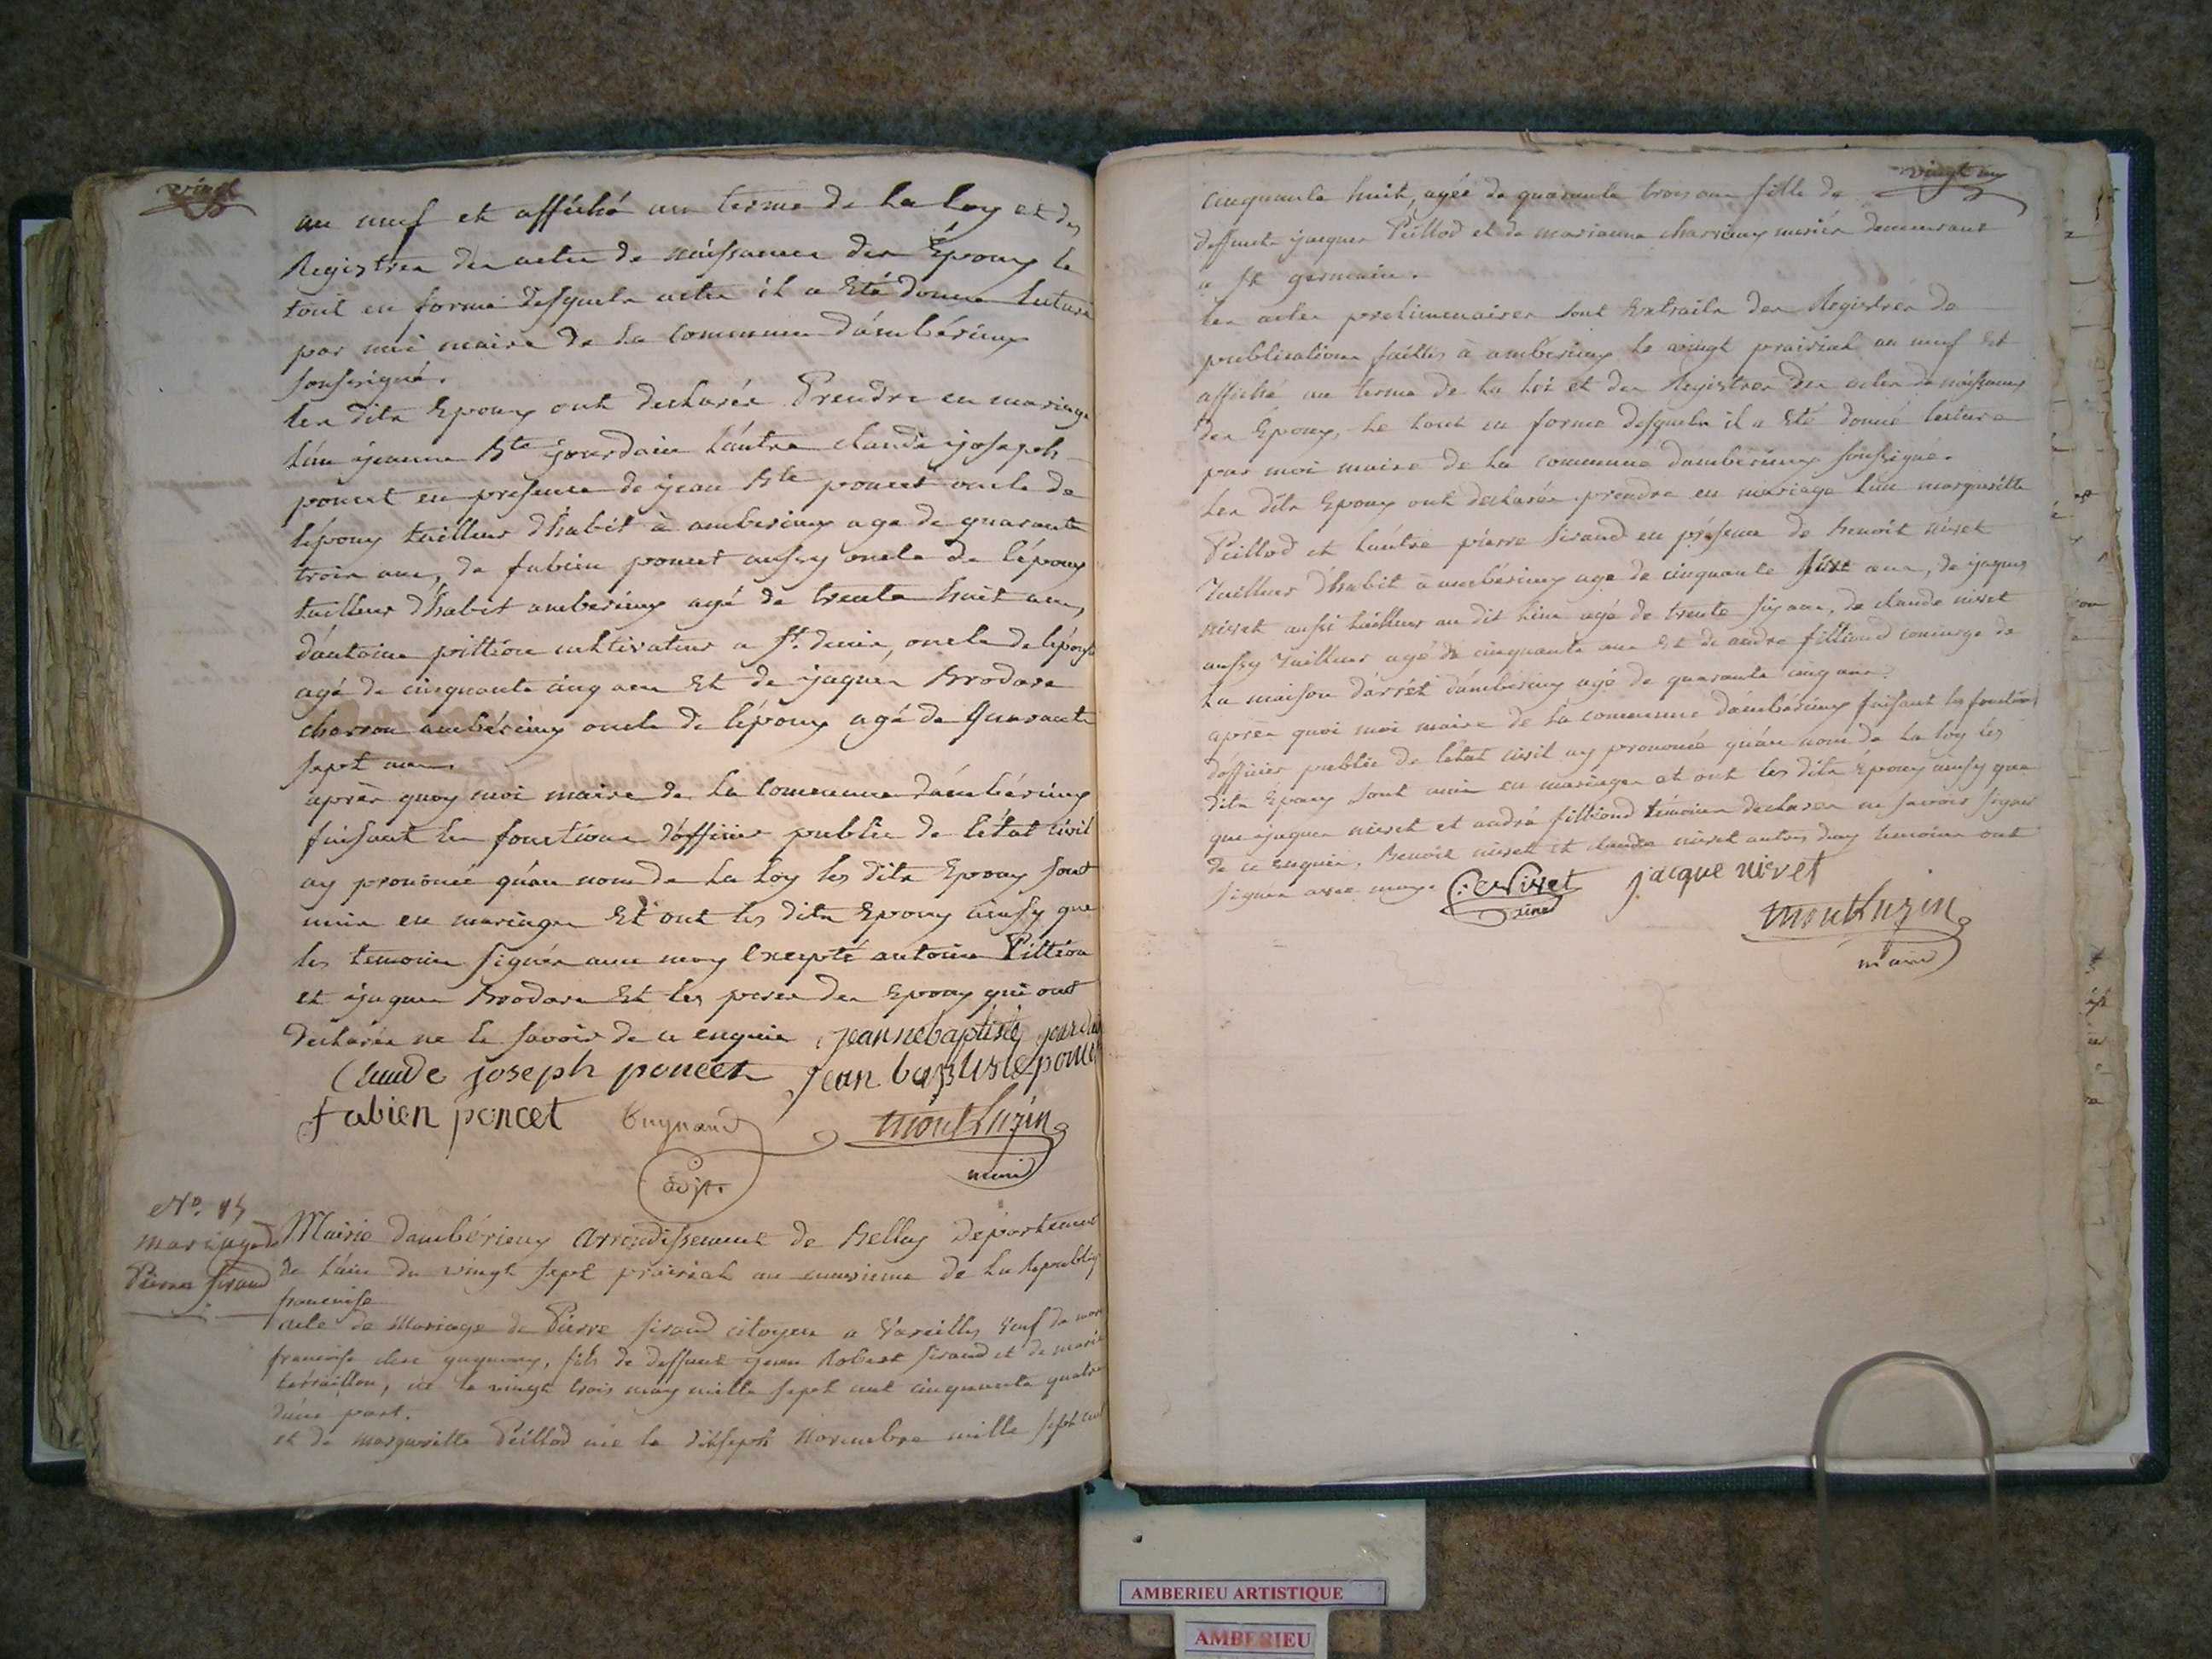 vingt
an neuf et affiché au terme de la loy et des
Registrea des actes de naissances des Époux le
tout en forme desquels actes il a Eté donné lecture
par moi maire de la commune d'ambérieux
soussigné.
les dits Epoux ont declarés Prendre en mariage
l'un jeanne Bte jourdain l'autre claude joseph
poncet en presence de jean Bte poncet oncle de
l'époux tailleur d'habit à amberieux age de quarante
trois ans, de fabien poncet aussy oncle de l'époux
tailleur d'habit amberieux agé de trente huit ans,
d'antoine pittion cultivateur a St. denis, oncle de l'épouse
agé de cinquante cinq ans Et de jaques Brodare
charron ambérieux oncle de l'époux agé de quarante
sept ans
après quoy moi maire de la commune d'ambérieux
faisant les fonctions d'officier public de l'état civil
ay prononcé qu'au nom de la loy les dits Epoux sont
unis en mariages Et ont les dits Epoux ainsy que
les temoins signés avec moy Excepté antoine Pittion
et jaques Brodare Et les peres des Epoux qui ont
declarés ne le savoir de ce enquis jeanne baptiste jourdain
Claude joseph poncet jean baptiste poncet
fabien poncet Montluzin
adjt. maire
No. 15
mariage de
Pierre Siraud
Mairie d'ambérieux arrondissement de Belley département
de l'ain du vingt sept prairial an neuvieme de la Republiq
francaise
acte de Mariage de Pierre Siraud citoyen a Vareilles Veuf de
francoise, fils de deffunt jean Robert Siraud et de marie
terraillon, né le vingt trois may mille sept cent cinquante quatre
d'une part.
et de margueritte Peillod née le dixsept Novembre mille sept cent
vingt un
cinquante huit, agée de quarante trois ans fille de
deffuncts jaques Peillod et de marianne charvieux mariés demeurant
a St germain.
les actes preliminaires sont Extraits des Registres de
publications faittes à amberieux le vingt prairial an neuf Et
affiché au terme de la loi et des Registres des actes de naissances
des Epoux, le tout en forme desquels il a Eté donné lecture
par moi maire de la commune d'amberieux soussigné.
Les dits Epoux ont declarés prendre en mariage l'un margueritte
Peillod et l'autre pierre Siraud en présence de benoit nivet
Tailleur d'habit à ambérieux age de cinquante sixt ans, de jaques
nivet aussi tailleur au dit lieu agé de trente six ans, de claude nivet
aussy tailleur agé de cinquante ans Et de andré filliond concierge de
la maison d'arrêt d'ambérieux agé de quarante cinq ans.
après quoi moi maire de la commune d'ambérieux faisant les fonctions
d'officier public de l'état civil ay prononcé qu'au nom de la loy les
dits Epoux sont unis en mariages et ont les dits Epoux ainsy que
que jaques nivet et andré filliond témoins declarés ne savoir signer
de ce enquis. Benoit nivet et claude nivet autres deux temoins ont
signés avec moy. C. Nivet jacque nivet
ainé Montluzin
maire
AMBERIEU ARTISTIQUE
AMBERIEU